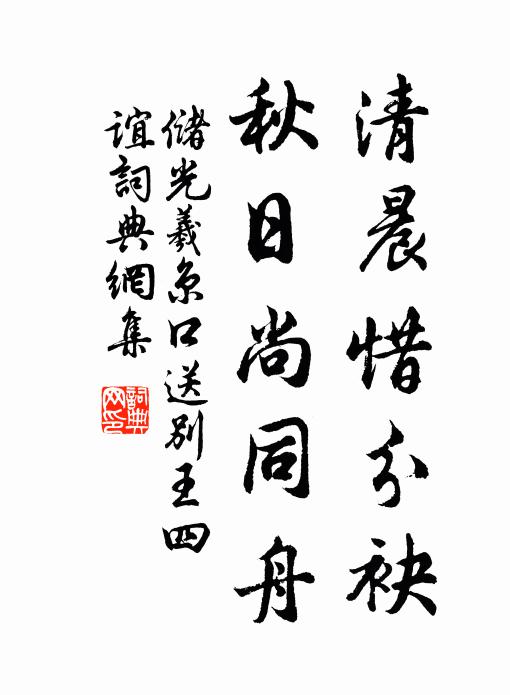 清晨惜分袂
秋日尚同舟
儲光羲京口送別王四
誼詞典網集
詞典網印